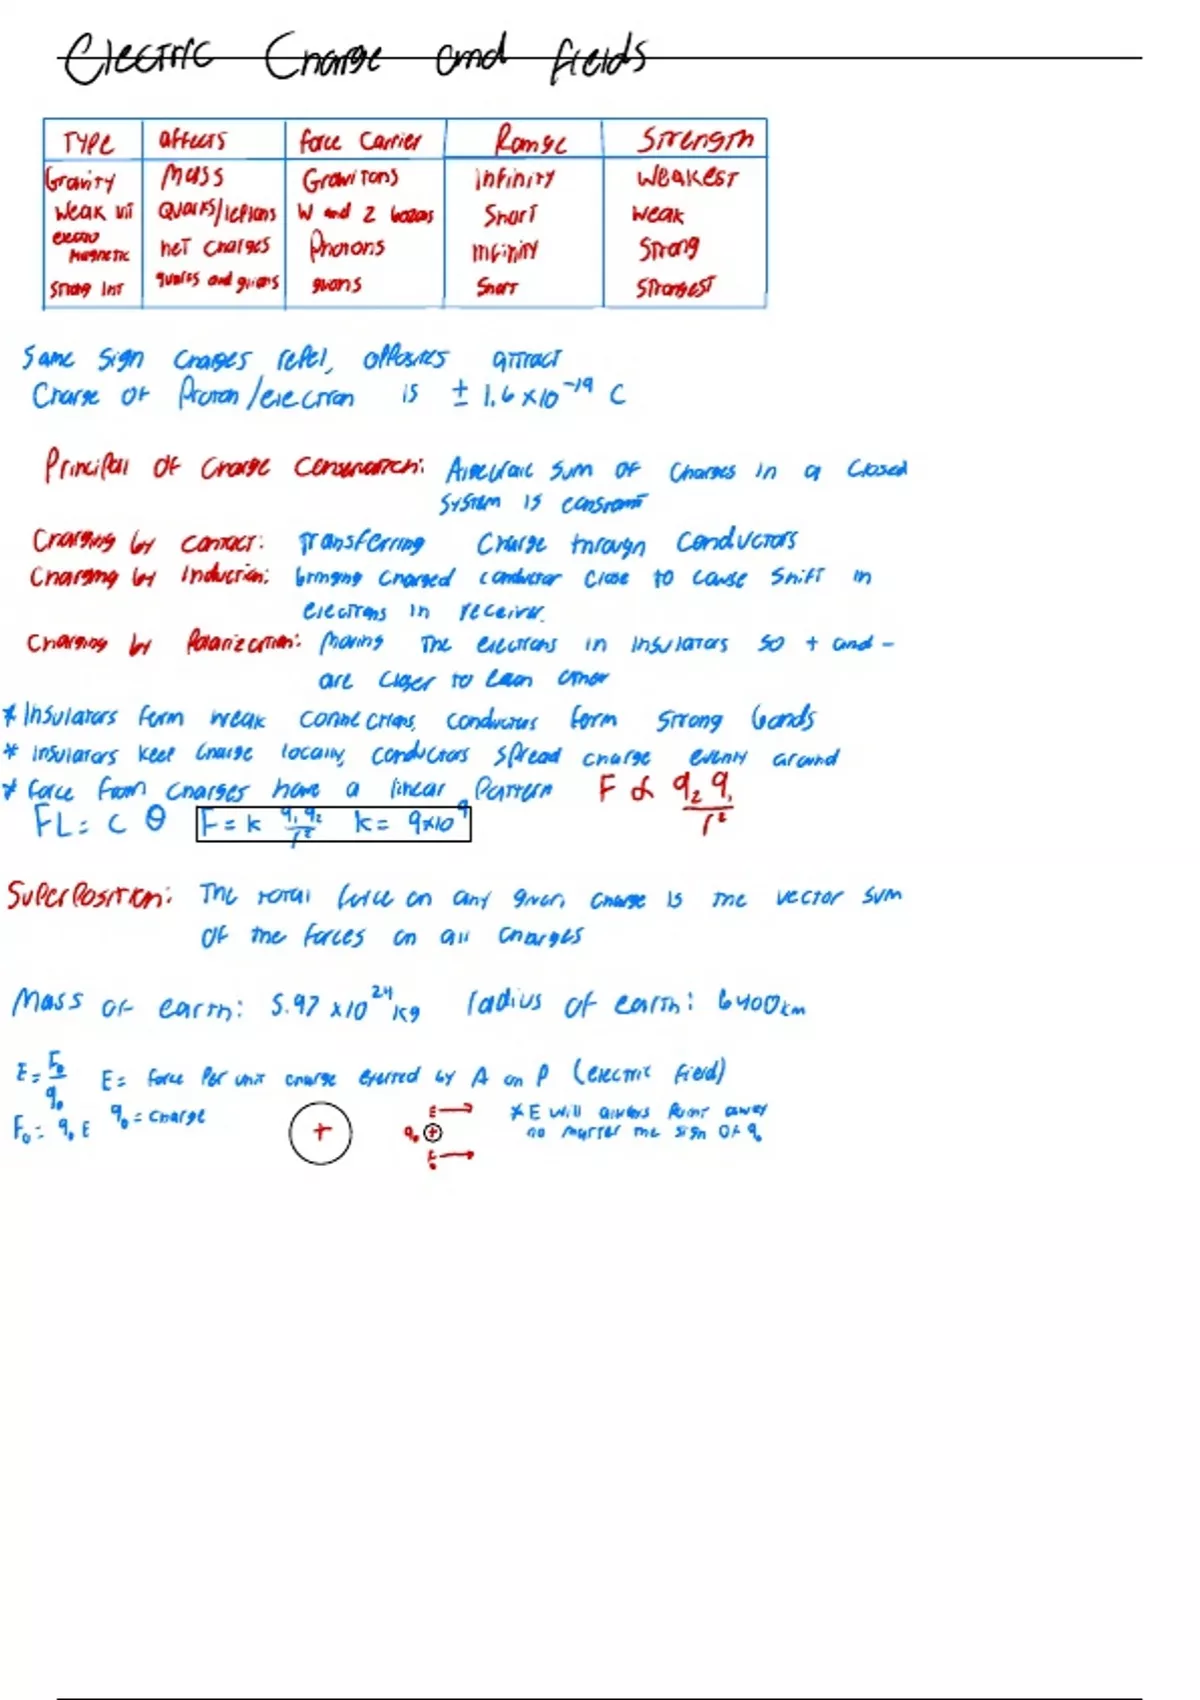 Electric Charge and fields
TYPE affects force Carrier Range Strength
Gravity Mass Gravitons infinity Weakest
Weak int Quarks/leptons W and Z bozons Short weak
electro Magnetic net charges Photons infinity Strong
Strong Int quarks and gluons Short Strongest
Same sign charges repel, opposites attract
Charge of Proton/electron is ± 1.6 x10⁻¹⁹ C
Principall of Charge Conservation: Algebraic sum of charges in a closed
system is constant
Charging by contact: transferring charge through conductors
Charging by Induction: bringing charged conductor close to cause shift in
electrons in receiver.
Charging by Polarization: Moving the electrons in insulators so + and -
are closer to each other
* Insulators form weak connections, conductors form strong bonds
* insulators keep charge locally, conductors spread charge evenly around
* force from charges have a linear Pattern F ∝ q₂ q₁ / r²
FL = C θ F = k q₁ q₂ / r² k = 9x10⁹
SuperPosition: The total force on any given charge is the vector sum
of the forces on all charges
Mass of earth: 5.97 x10²⁴ kg radius of earth: 6400km
E = F₀ / q₀ E = force Per unit charge exerted by A on P (electric field)
F₀ = q₀ E q₀ = charge
+ q₀ + E F₀
* E will always point away
no matter the sign of q₀